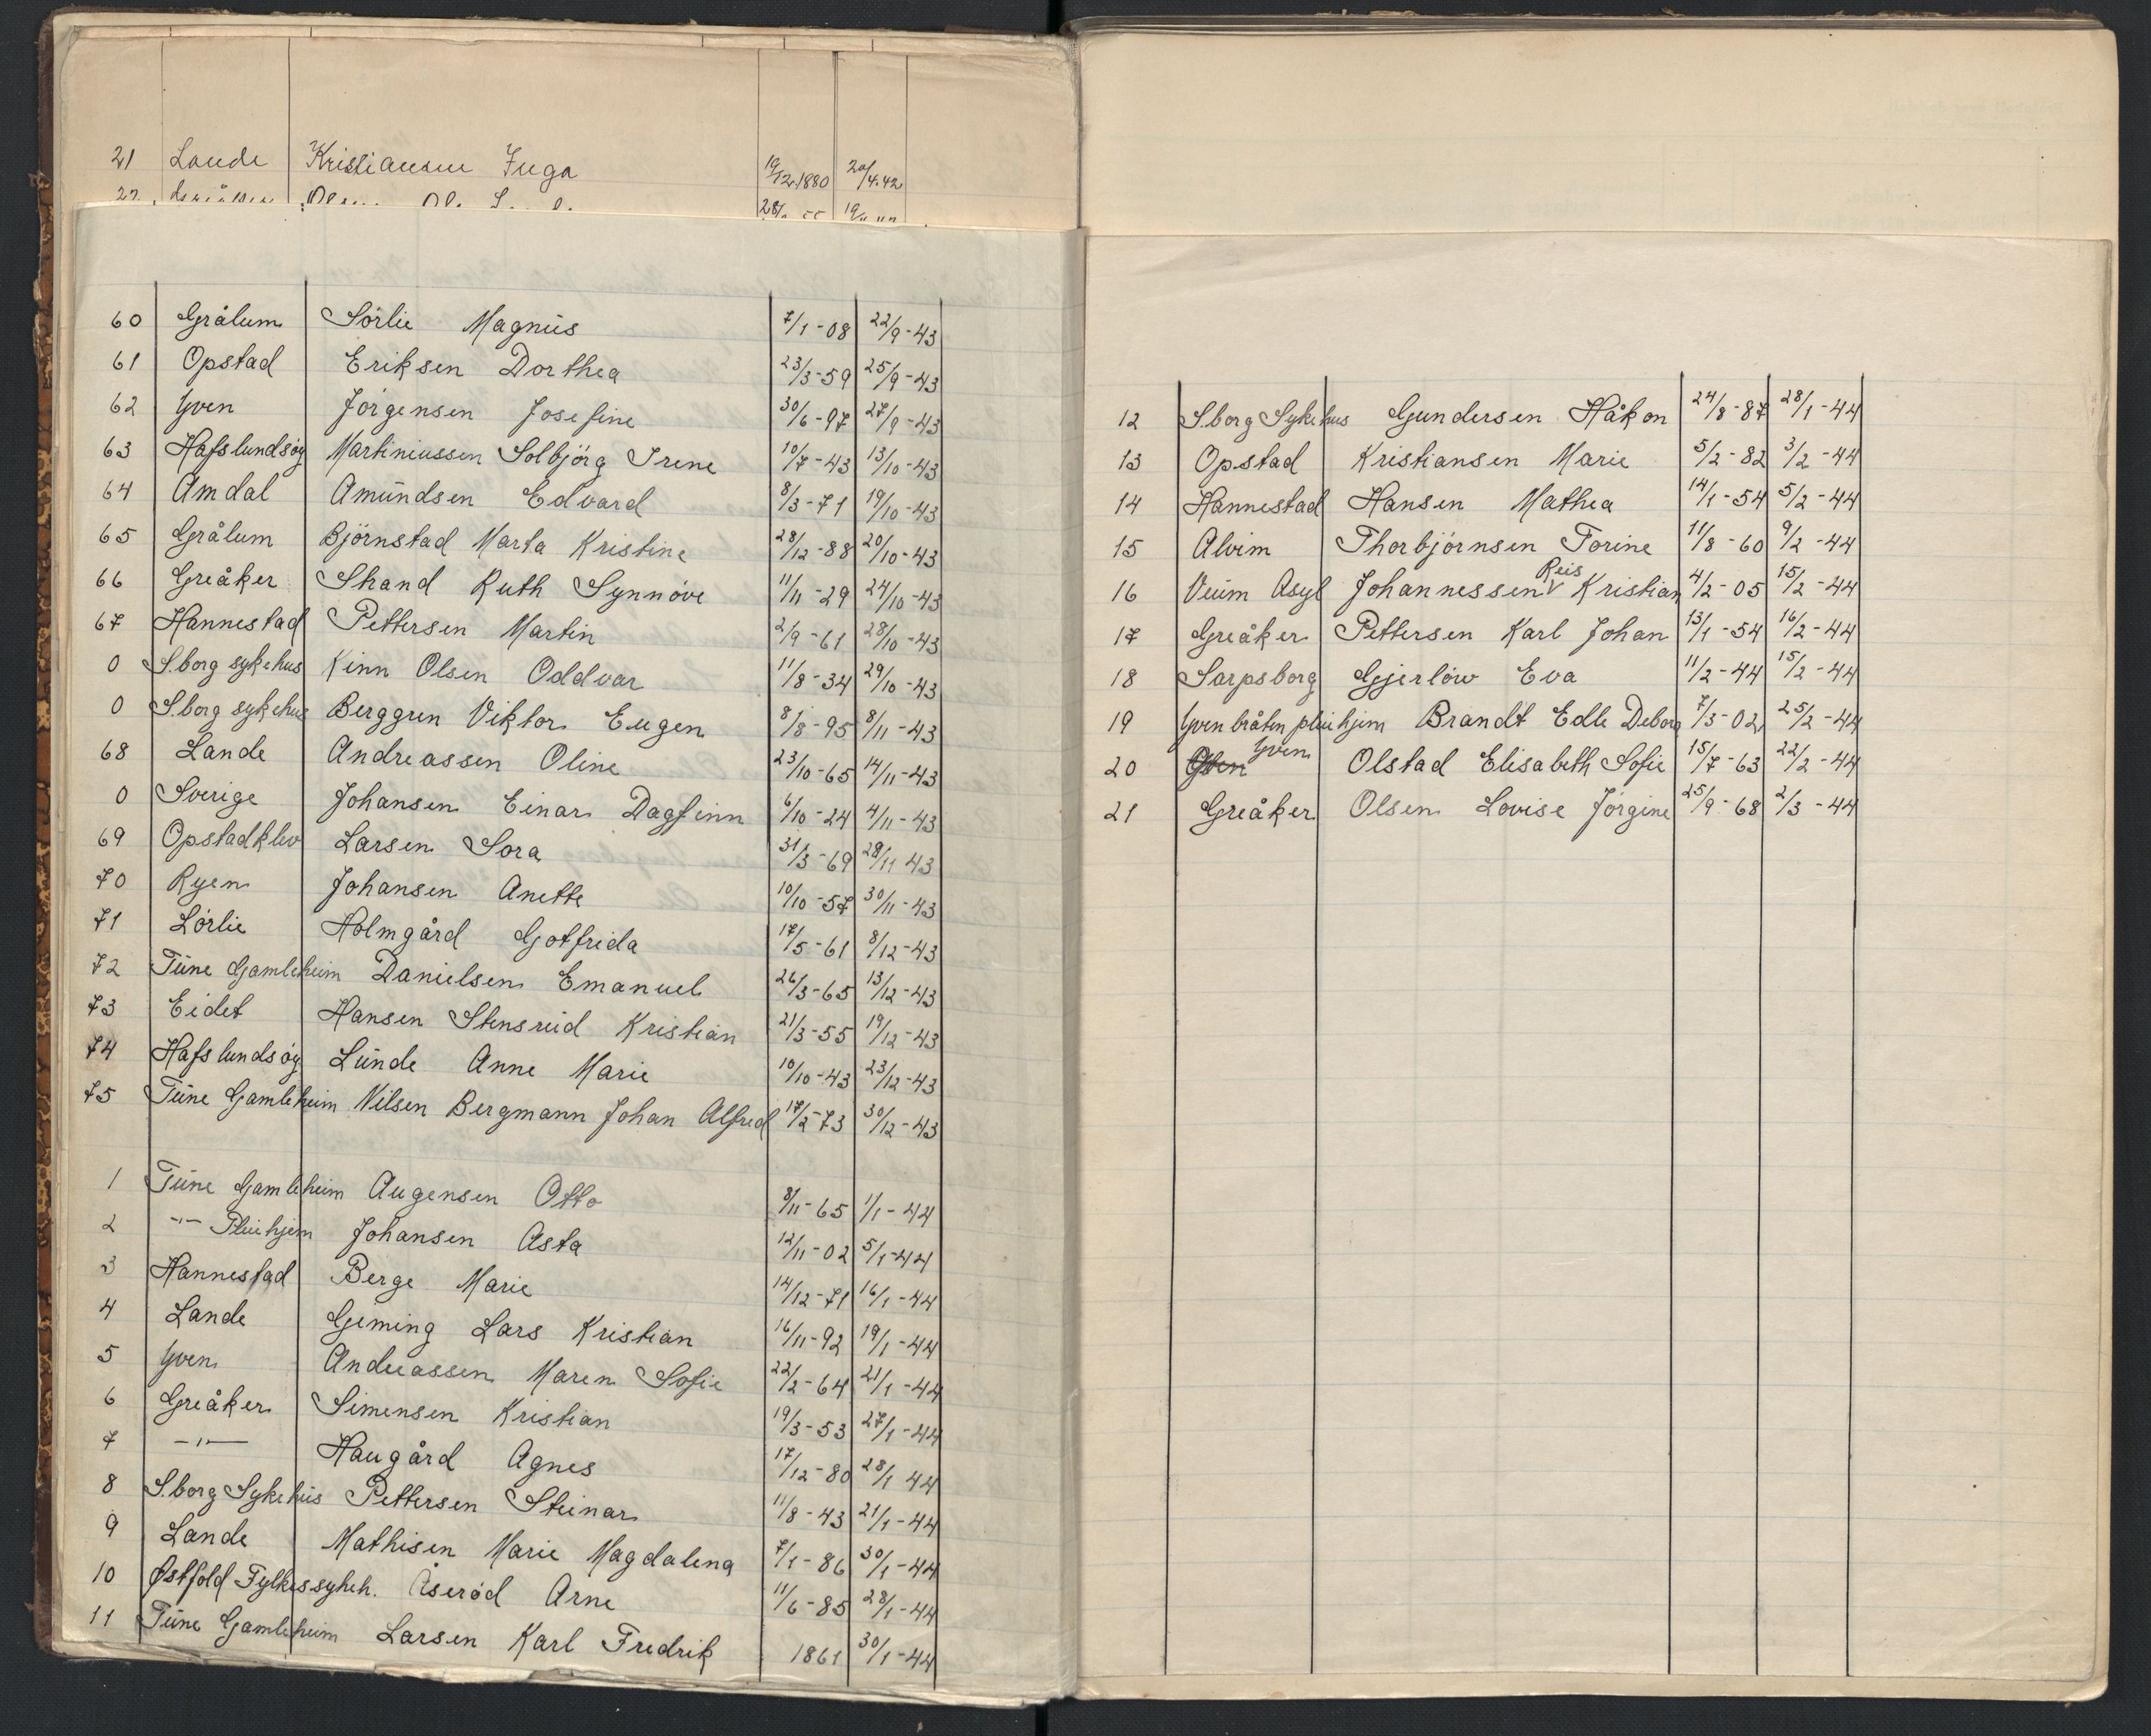 21 Lande Kristiansen Inga 19/12.1880 20/4.42
22
60 Grålum Sörlie Magnus 7/1-08 22/9-43
61 Opstad Eriksen Dorthea 23/3-59 25/9-43
62 Yven Jörgensen Josefine 30/6-97 27/9-43
63 Hafslundsöy Martiniussen Solbjörg Irene 10/7-43 13/10-43
64 Amdal Amundsen Edvard 8/3-71 19/10-43
65 Grålum Björnstad Marta Kristine 28/12-88 20/10-43
66 Greåker Skand Ruth Synnöve 11/11-29 24/10-43
67 Hannestad Pettersen Martin 2/9-61 28/10-43
0 S.borg sykehus Kinn Olsen Oddvar 11/8-34 29/10-43
0 S.borg sykehus Berggren Viktor Eugen 8/8-95 8/11-43
68 Lande Andreassen Oline 23/10-65 14/11-43
0 Sverige Johansen Einar Dagfinn 6/10-24 4/11-43
69 Opstadklev Larsen Sora 31/3-69 28/11 43
70 Ryen Johansen Anette 10/10-57 30/11-43
71 Lörlie Holmgård Gotfrida 17/5-61 8/12-43
72 Tune Gamleheim Danielsen Emanuel 26/3-65 13/12-43
73 Eidet Hansen Stensrud Kristian 21/3-55 19/12-43
74 Hafslundsöy Lunde Anne Marie 10/10-43 23/12-43
75 Tune Gamleheim Nilsen Bergmann Johan Alfred 17/2-73 30/12-43
1 Tune Gamleheim Augensen Otto 8/11-65 1/1-44
2 -"- Pleiehjem Johansen Asta 12/11-02 5/1-44
3 Hannestad Berge Marie 14/12-71 16/1-44
4 Lande Geming Lars Kristian 16/11-92 19/1-44
5 Yven Andreassen Maren Sofie 22/2-64 21/1-44
6 Greåker Simensen Kristian 19/3-53 27/1-44
7 -"- Haugård Agnes 17/12-80 28/1 44
8 S.borg Sykehus Pettersen Steinar 11/8-43 21/1-44
9 Lande Mathisen Marie Magdalena 7/1-86 30/1-44
10 Østfold Fylkessykeh. Åseröd Arne 11/6-85 28/1-44
11 Tune Gamleheim Larsen Karl Fredrik 1861 30/1-44
12 S.borg Sykehus Gundersen Håkon 24/8-87 28/1-44
13 Opstad Kristiansen Marie 5/2-82 3/2-44
14 Hannestad Hansen Mathea 14/1-54 5/2-44
15 Alvim Thorbjörnsen Torine 11/8-60 9/2-44
16 Veum Asyl Johannessen Reis Kristian 4/2-05 15/2-44
17 Greåker Pettersen Karl Johan 13/1-54 16/2-44
18 Sarpsborg Gjerlöw Eva 11/2-44 15/2-44
19 Yvenbråten pleiehjem Brandt Edle Debora 7/3-02 25/2-44
20 Yven Olstad Elisabeth Sofie 15/7-63 22/2-44
21 Greåker Olsen Lovise Jörgine 25/9-68 2/3-44